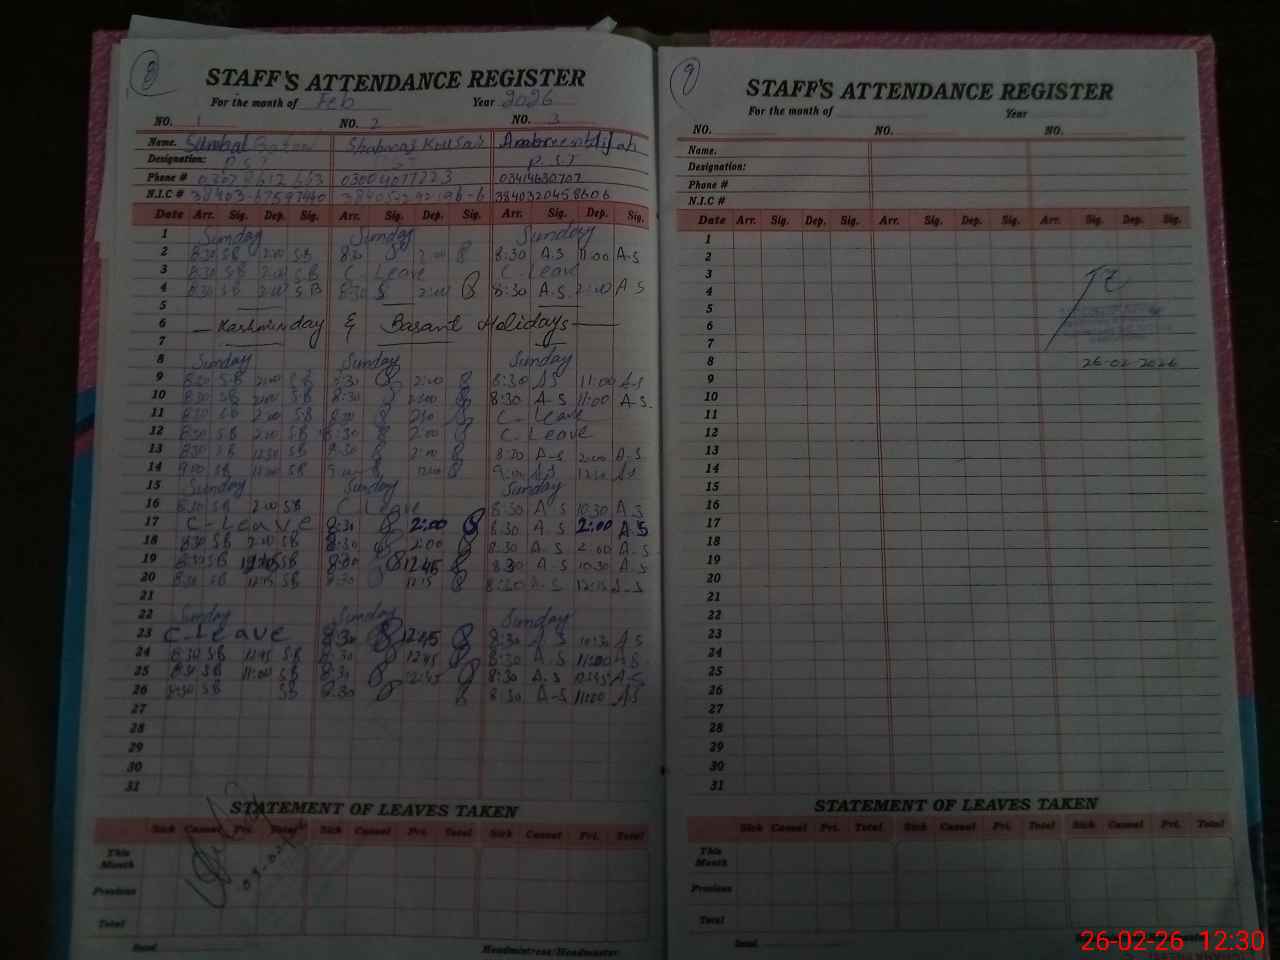 8
STAFF'S ATTENDANCE REGISTER
For the month of Feb Year 2026
NO. 1 NO. 2 NO. 3
Name. Sumbal Shahnaz
Designation: P.S.T
Phone # 03004077223 03414630707
N.I.C # 3840320458606
Date Arr. Sig. Dep. Sig. Arr. Sig. Dep. Sig. Arr. Sig. Dep. Sig.
1 Sunday Sunday Sunday
2 8:30 S.B 2:00 S.B 8:30 2:00 8:30 A.S 11:00 A-S
3 8:30 S.B 2:00 S.B C. Leave C. Leave
4 8:30 S.B 2:00 S.B 8:30 2:00 8:30 A.S 2:00 A S
5
6 Kashmir day & Basant Holidays
7
8 Sunday Sunday Sunday
9 8:30 S.B 2:00 S.B 8:30 2:00 8:30 A.S 11:00 A-S
10 8:30 S.B 2:00 S.B 8:30 2:00 8:30 A-S 11:00 A-S.
11 8:30 S.B 2:00 S.B 8:30 C. Leave
12 8:30 S.B 2:00 S.B 8:30 2:00 C. Leave
13 8:30 S.B S.B 8:30 2:00 8:30 A-S 2:00 A-S
14 9:00 S.B S.B 9:00 A.S A.S
15 Sunday Sunday Sunday
16 8:30 S.B 2:00 S.B C. Leave 8:30 A.S 10:30 A.S
17 C-Leave 8:30 2:00 8:30 A.S 2:00 A.S
18 8:30 S.B 2:00 S.B 8:30 2:00 8:30 A-S 2:00 A-S
19 8:30 S.B S.B 12:45 8:30 A-S 10:30 A-S
20 8:30 S.B 12:15 S.B 8:30 12:15 8:30 A-S 12:15 A-S
21
22 Sunday Sunday Sunday
23 C-Leave 8:30 12:45 8:30 A.S 10:30 A.S
24 8:30 S.B 12:45 S.B 8:30 12:45 8:30 A.S
25 8:30 S.B 11:00 S.B 8:30 12:45 8:30 A.S 12:45 A-S
26 8:30 S.B S.B 8:30 8:30 A-S 11:00 A.S
27
28
29
30
31
STATEMENT OF LEAVES TAKEN
Sick Casual Pri. Total Sick Casual Pri. Total Sick Casual Pri. Total
This Month
Previous
Total
Headmistress/Headmaster
9
STAFF'S ATTENDANCE REGISTER
For the month of Year
NO. NO. NO.
Name.
Designation:
Phone #
N.I.C #
Date Arr. Sig. Dep. Sig. Arr. Sig. Dep. Sig. Arr. Sig. Dep. Sig.
1
2
3
4
5
6
7
8 26-02-2026
9
10
11
12
13
14
15
16
17
18
19
20
21
22
23
24
25
26
27
28
29
30
31
STATEMENT OF LEAVES TAKEN
Sick Casual Pri. Total Sick Casual Pri. Total Sick Casual Pri. Total
This Month
Previous
Total
26-02-26 12:30